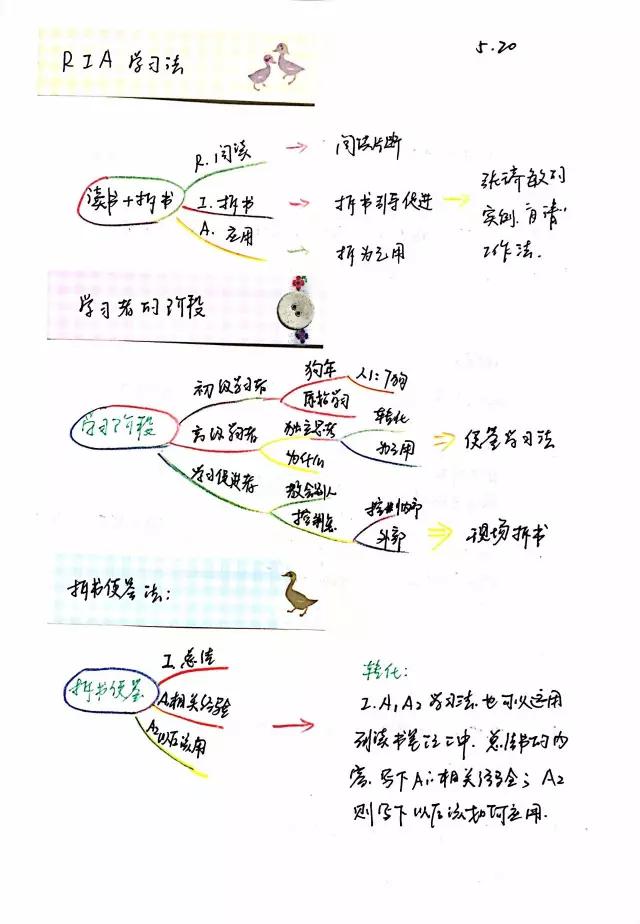 5.20
RIA学习法
R.阅读
阅读片断
读书+拆书
I.拆书
拆书引导促进
张诗敏的
实例.
工作法.
A.应用
拆为己用
学习者的阶段
初级学习者
狗年
人1:7狗
原始学习
学习阶段
高级学习者
独立思考
转化
为己用
便签学习法
为什么
学习促进者
教会别人
控制点
内部
外部
现场拆书
拆书便签法:
拆书便签
I.总结
A1相关经验
A2以后应用
转化:
I.A1A2学习法.也可以运用
到读书笔记之中.总结书的内
容.写下A1:相关经验;A2
则写下以后该如何应用.